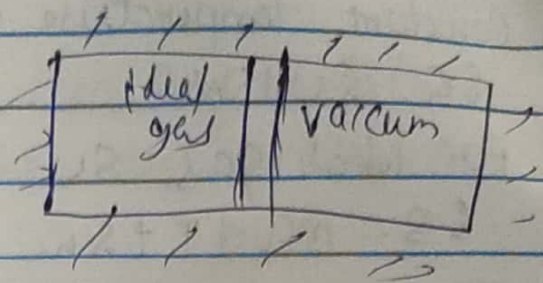 ideal
gas
vaccum